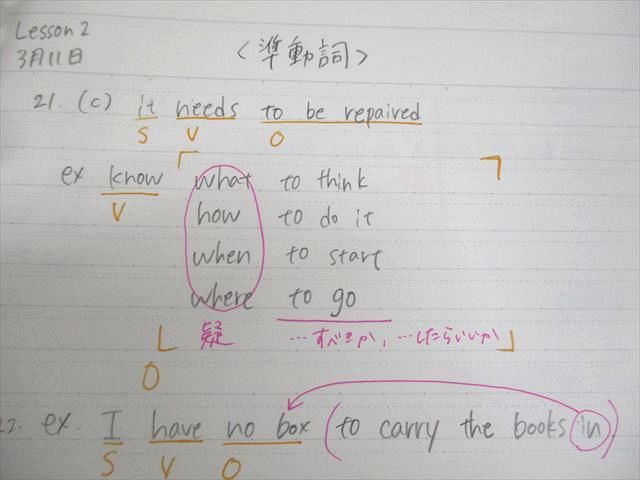 Lesson 2
3月11日
<準動詞>
21. (c) it needs to be repaired
S V O
ex know what to think
V
how to do it
when to start
where to go
疑 …すべきか, …したらいいか
O
22. ex. I have no box (to carry the books in)
S V O